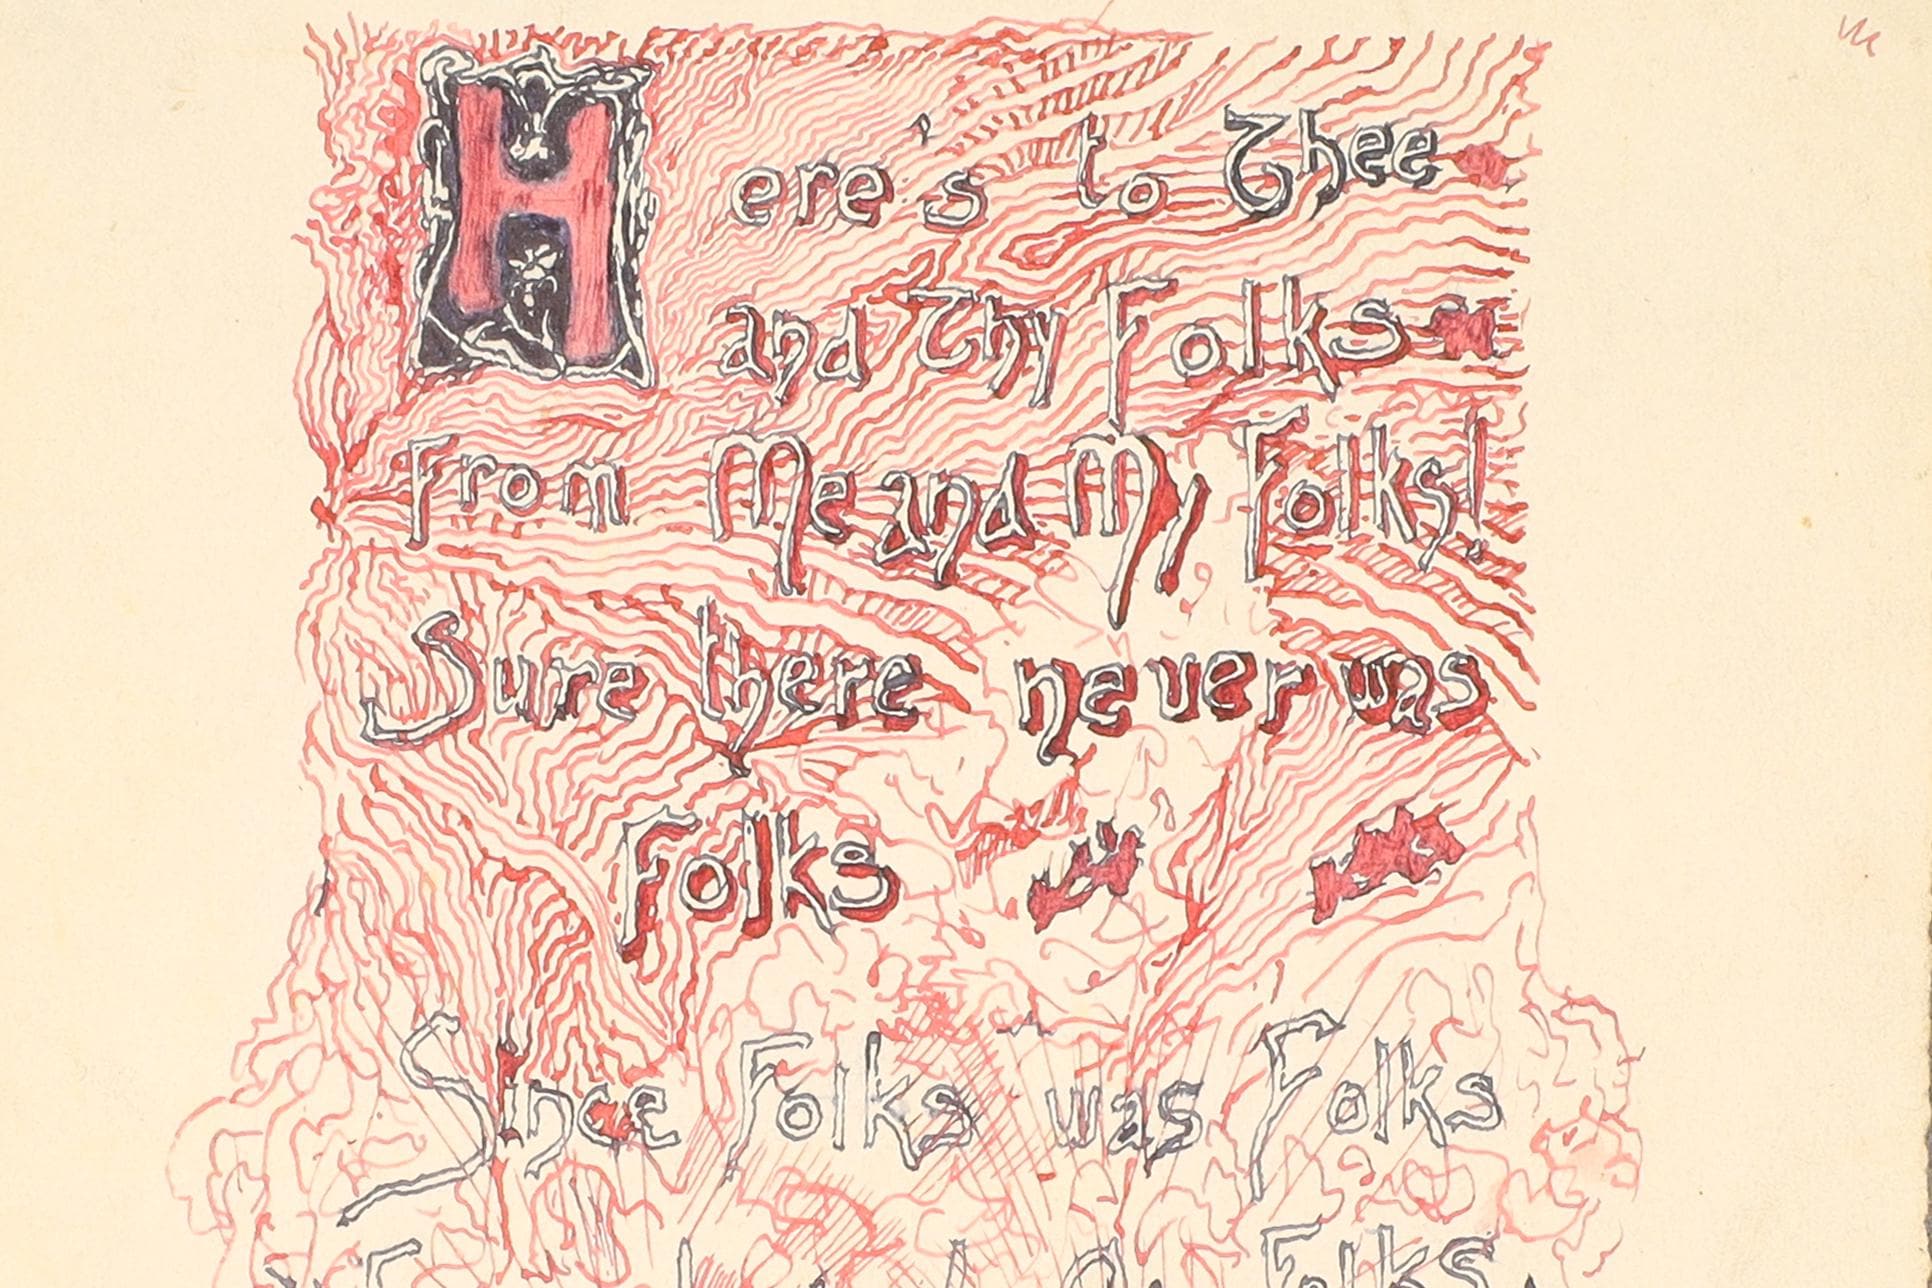 Here's to Thee
and Thy Folks
From Me and My Folks!
Sure there never was
Folks
Since Folks was Folks
Folks